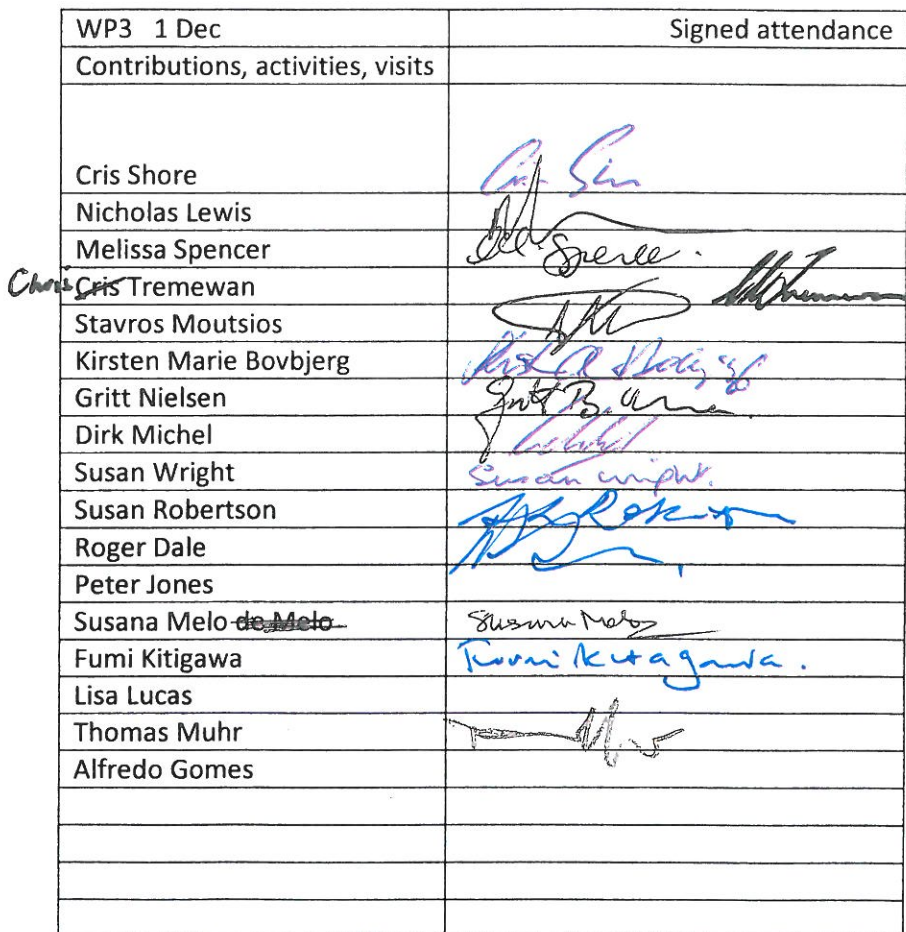 WP3 1 Dec Signed attendance
Contributions, activities, visits
Cris Shore
Nicholas Lewis
Melissa Spencer Spencer
Chris Cris Tremewan
Stavros Moutsios
Kirsten Marie Bovbjerg
Gritt Nielsen
Dirk Michel
Susan Wright Susan Wright.
Susan Robertson
Roger Dale
Peter Jones
Susana Melo de Melo Susana Melo
Fumi Kitigawa Fumi Kitagawa.
Lisa Lucas
Thomas Muhr
Alfredo Gomes